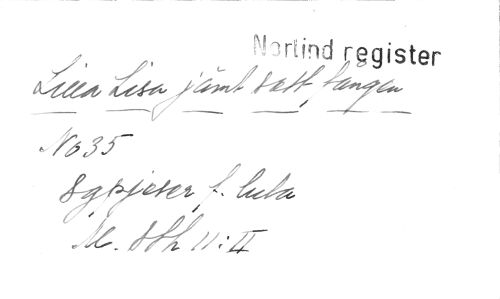 Norlind register
Lilla Lisa jämt satt fången
No 35
8 gpjeser f. luta
M. Sth 11:II